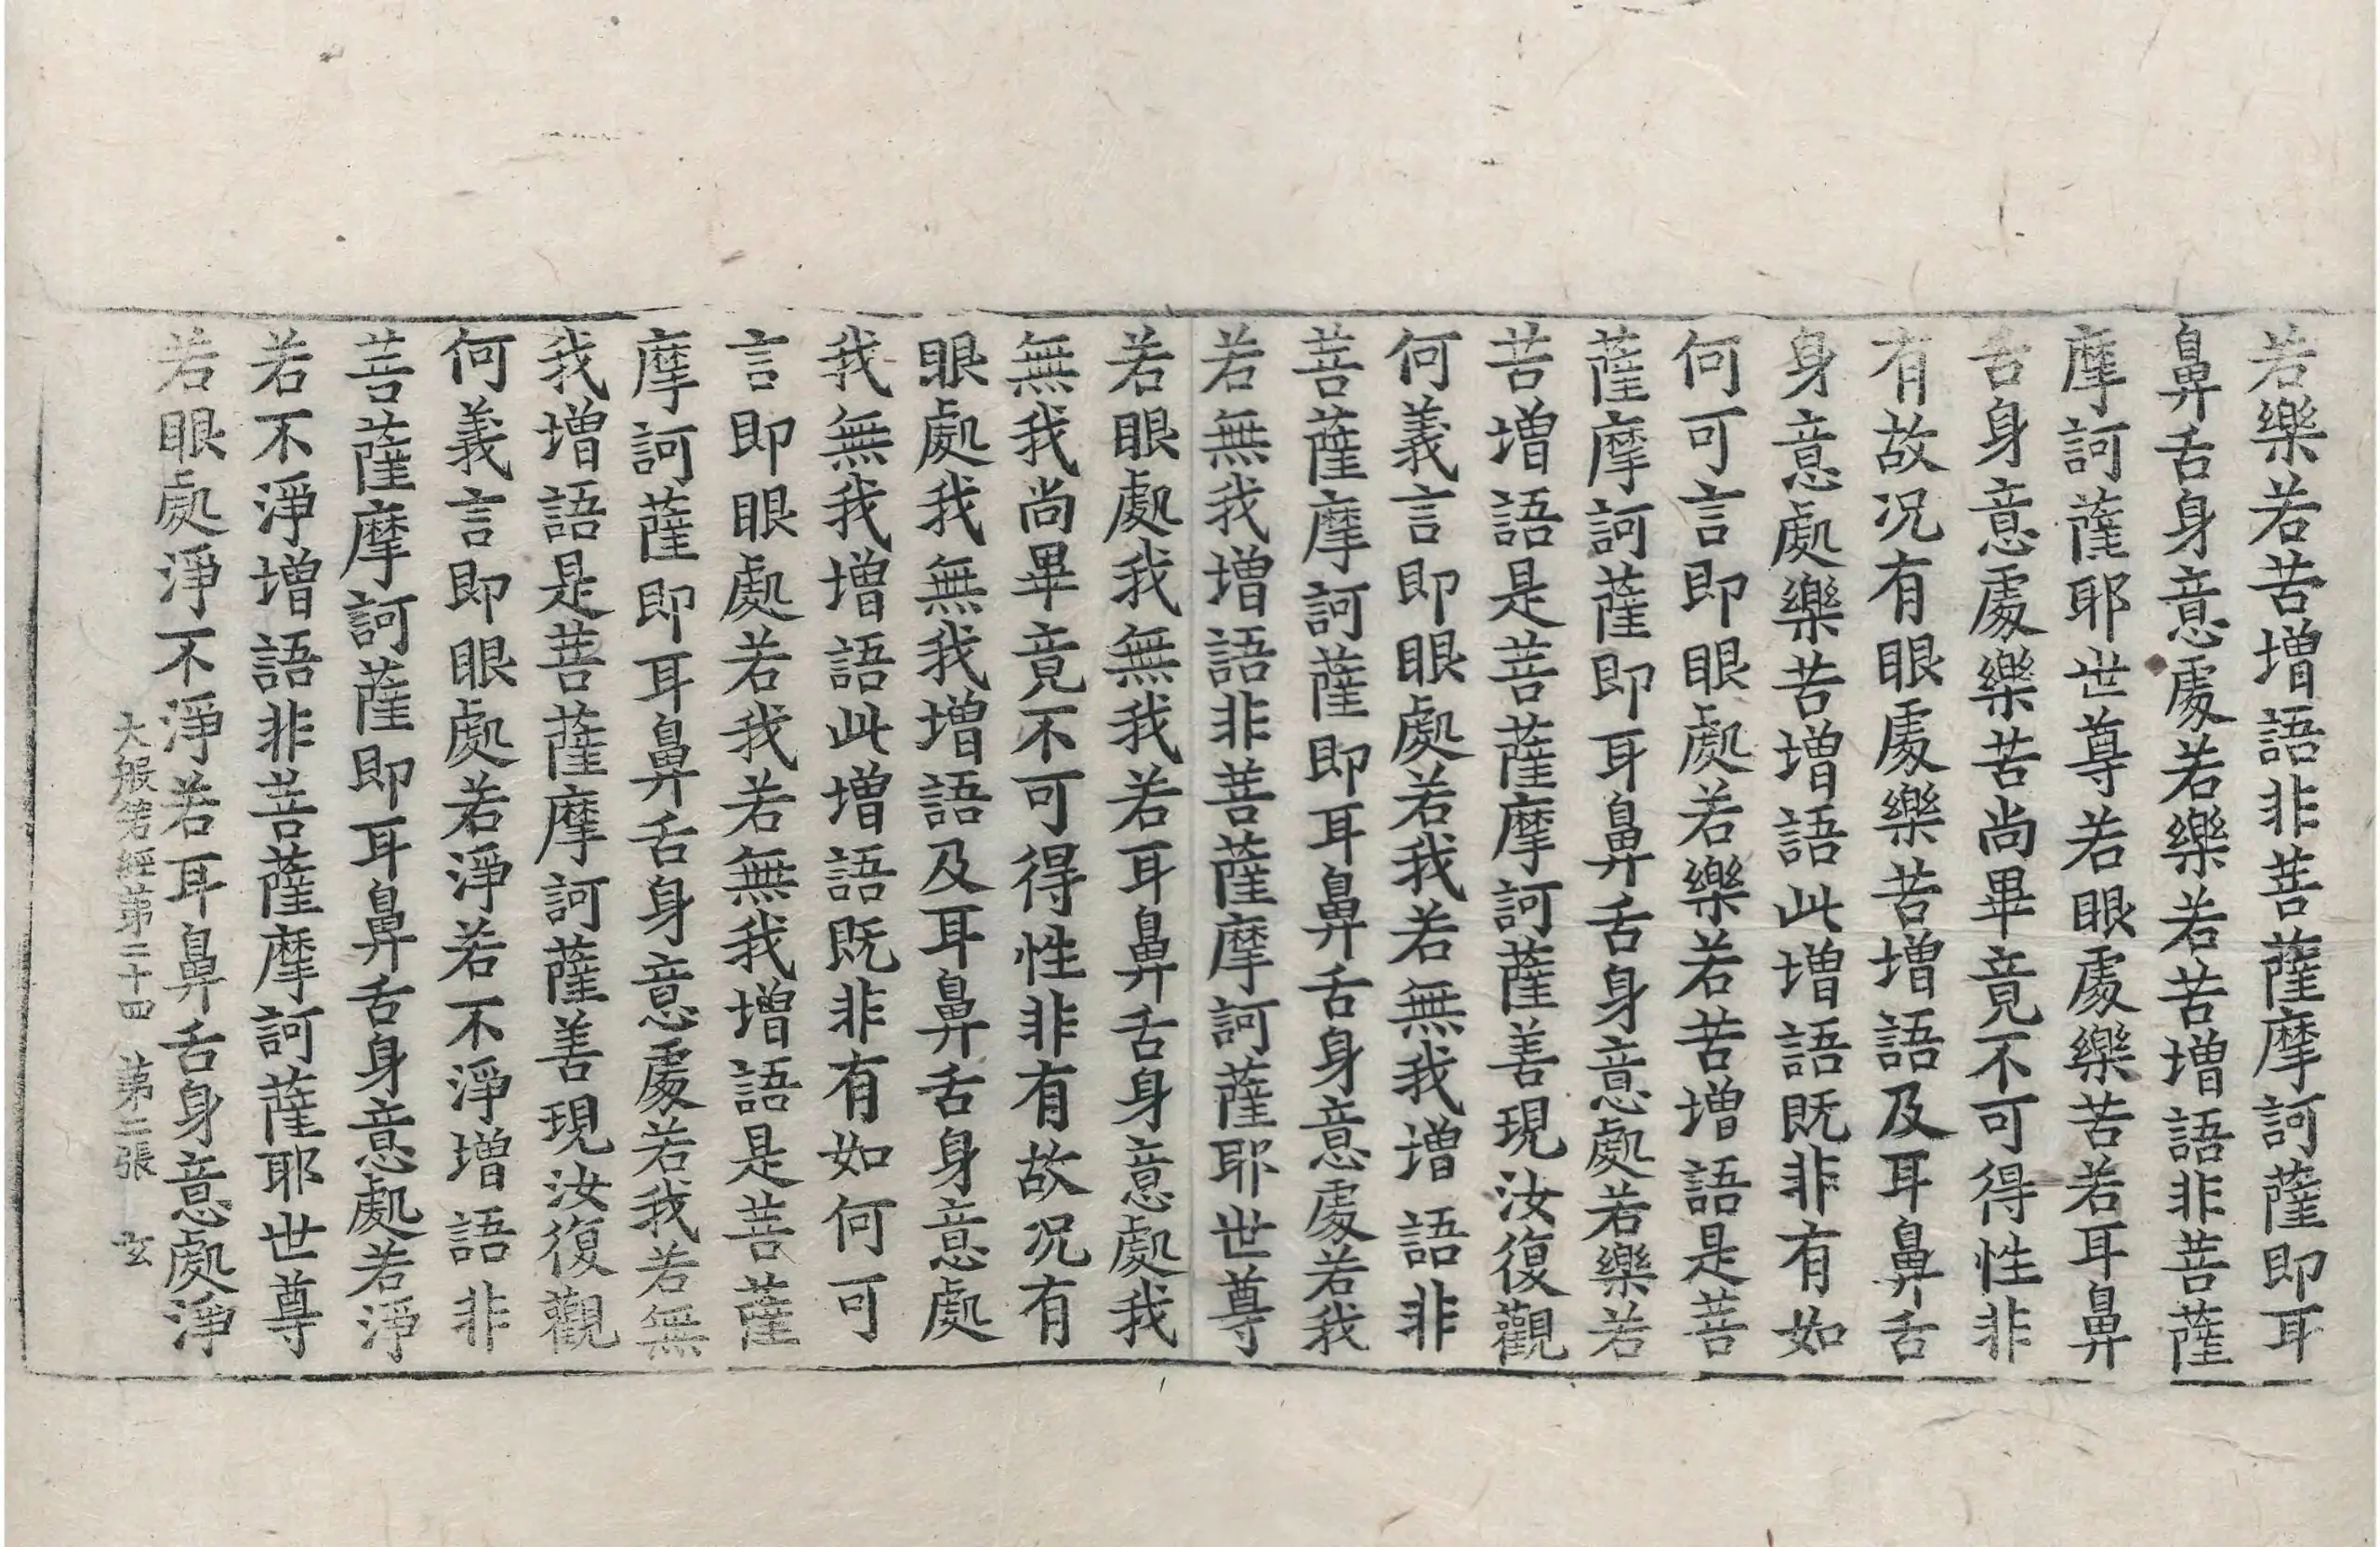 若樂若苦增語非菩薩摩訶薩即耳
鼻舌身意處若樂若苦增語非菩薩
摩訶薩耶世尊若眼處樂苦若耳鼻
舌身意處樂苦尚畢竟不可得性非
有故況有眼處樂苦增語及耳鼻舌
身意處樂苦增語此增語既非有如
何可言即眼處若樂若苦增語是菩
薩摩訶薩即耳鼻舌身意處若樂若
苦增語是菩薩摩訶薩善現汝復觀
何義言即眼處若我若無我增語非
菩薩摩訶薩即耳鼻舌身意處若我
若無我增語非菩薩摩訶薩耶世尊
若眼處我無我若耳鼻舌身意處我
無我尚畢竟不可得性非有故況有
眼處我無我增語及耳鼻舌身意處
我無我增語此增語既非有如何可
言即眼處若我若無我增語是菩薩
摩訶薩即耳鼻舌身意處若我若無
我增語是菩薩摩訶薩善現汝復觀
何義言即眼處若淨若不淨增語非
菩薩摩訶薩即耳鼻舌身意處若淨
若不淨增語非菩薩摩訶薩耶世尊
若眼處淨不淨若耳鼻舌身意處淨
大般若經第二十四 第二張 玄